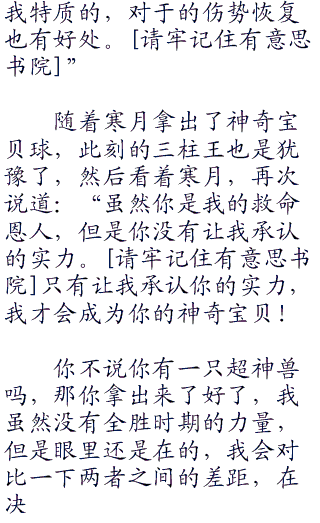 我特质的，对于的伤势恢复
也有好处。[请牢记住有意思
书院]”
随着寒月拿出了神奇宝
贝球，此刻的三柱王也是犹
豫了，然后看着寒月，再次
说道：“虽然你是我的救命
恩人，但是你没有让我承认
的实力。[请牢记住有意思书
院]只有让我承认你的实力，
我才会成为你的神奇宝贝！
你不说你有一只超神兽
吗，那你拿出来了好了，我
虽然没有全胜时期的力量，
但是眼里还是在的，我会对
比一下两者之间的差距，在
决